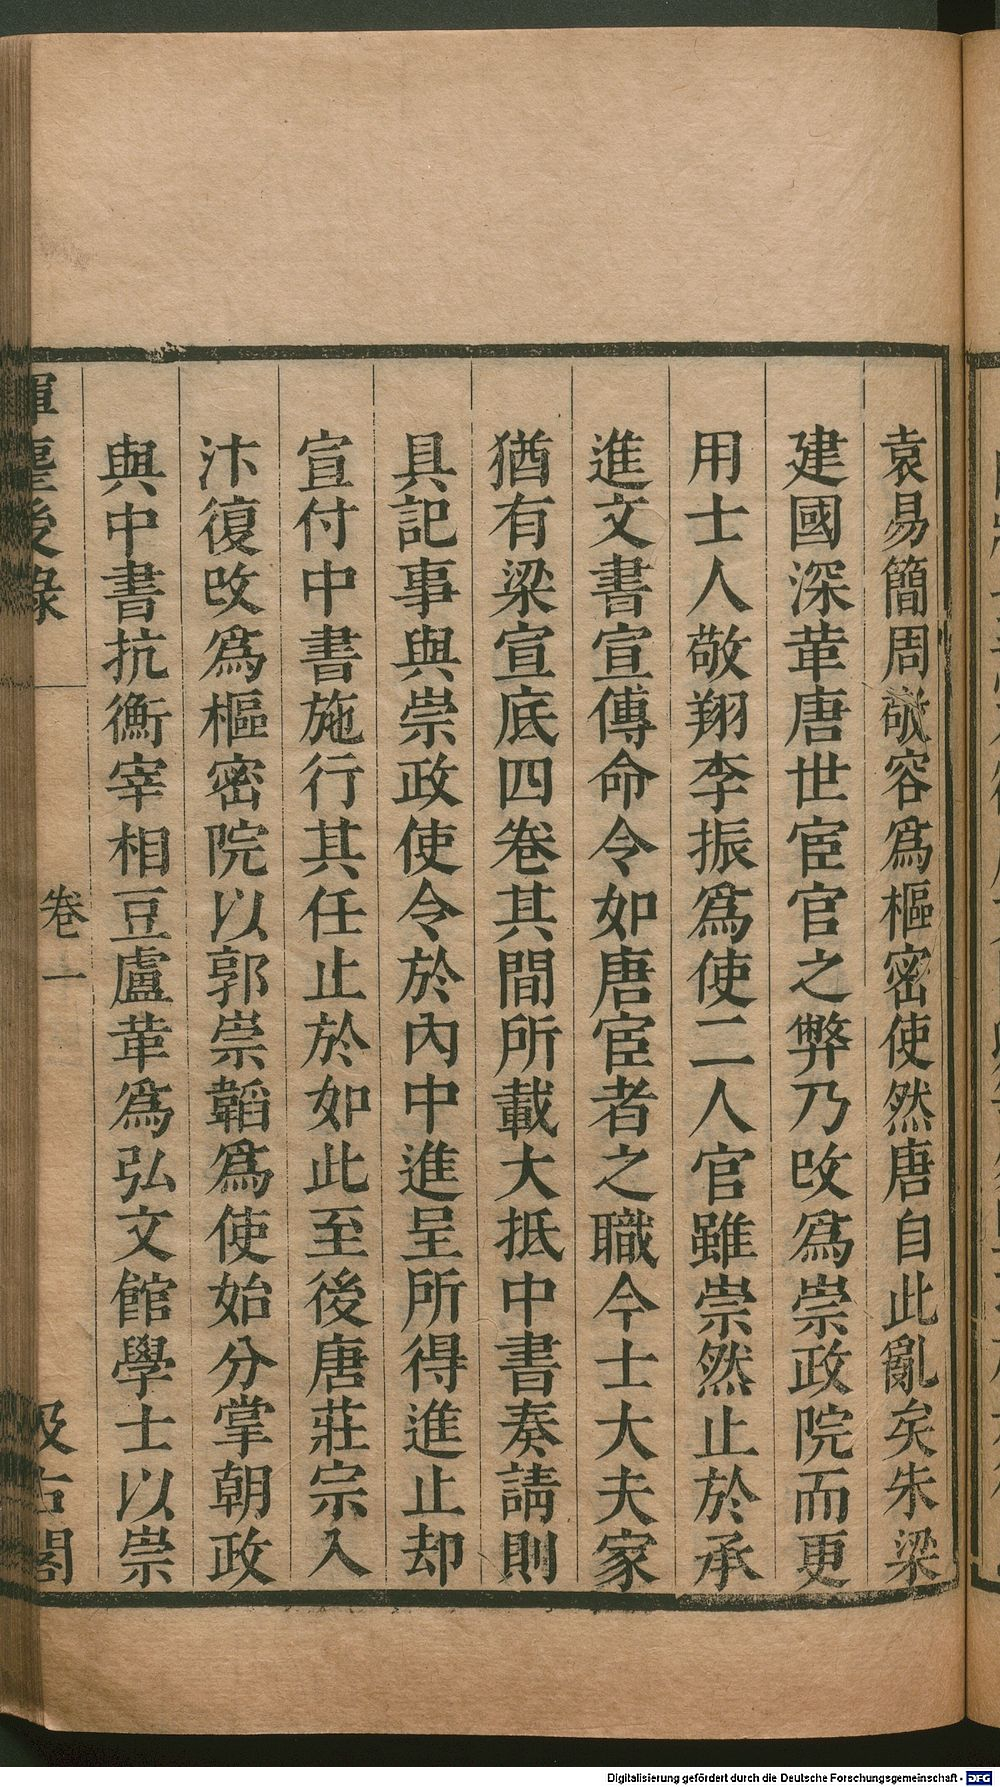 袁易簡周敬容爲樞密使然唐自此亂矣朱梁
建國深革唐世宦官之弊乃攺爲崇政院而更
用士人敬翔李振爲使二人官雖崇然止於承
進文書宣傳命令如唐宦者之職今士大夫家
猶有梁宣底四卷其間所載大抵中書奏請則
具記事與崇政使令於內中進呈所得進止却
宣付中書施行其任止於如此至後唐莊宗入
汴復攺爲樞密院以郭崇韜爲使始分掌朝政
與中書抗衡宰相豆盧革爲弘文館學士以崇
揮麈後錄
卷一
汲古閣
Digitalisierung gefördert durch die Deutsche Forschungsgemeinschaft - DFG